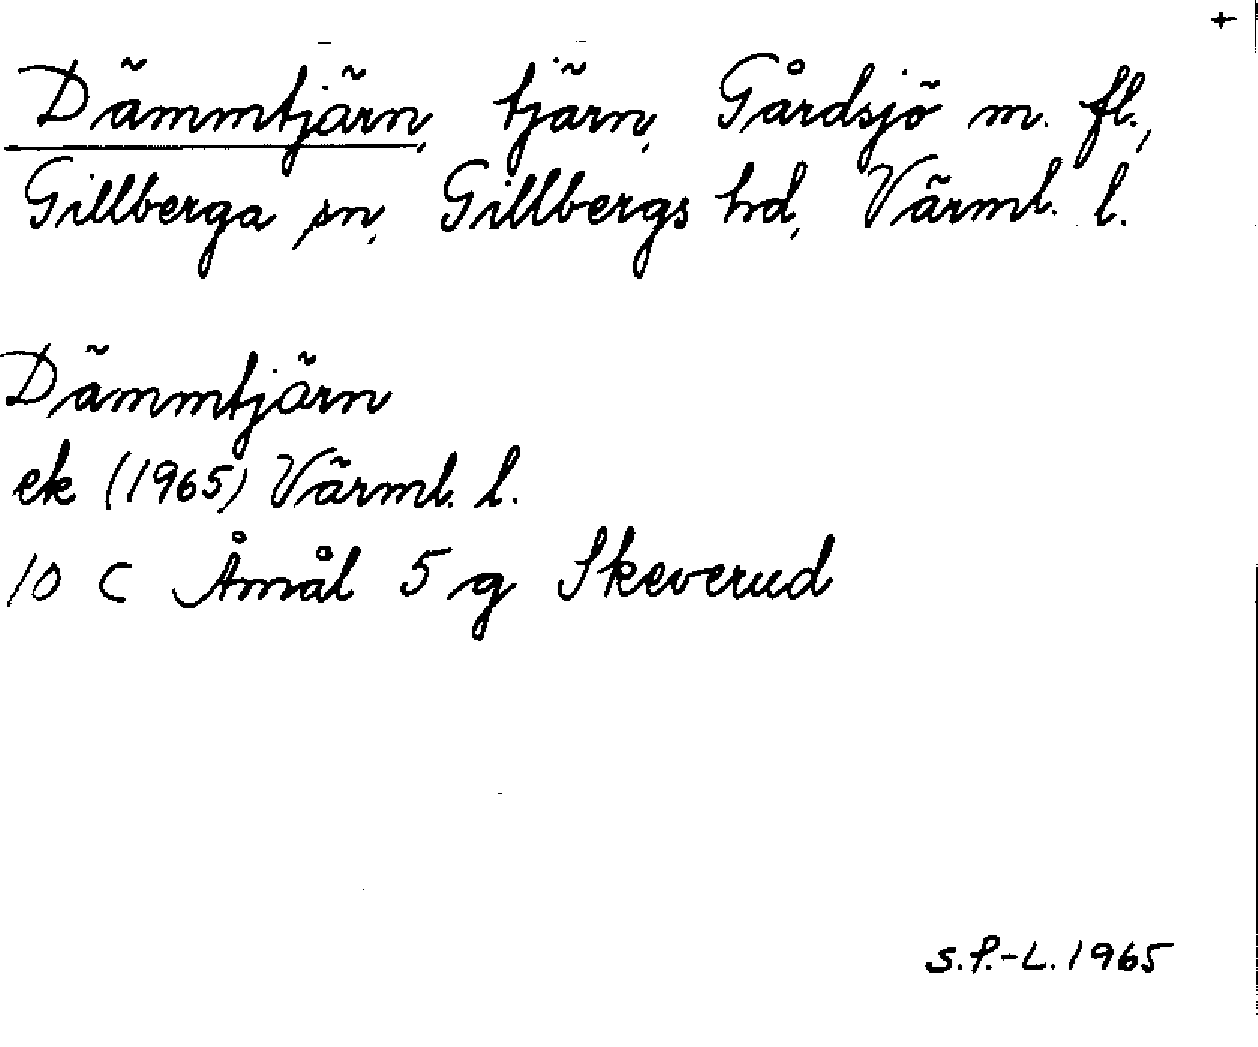 +
Dämmtjärn, tjärn, Gårdsjö m. fl.,
Gillberga sn, Gillbergs hd, Värml. l.
Dämmtjärn
ek (1965) Värml. l.
10 C Åmål 5 g Skeverud
S.P.-L. 1965